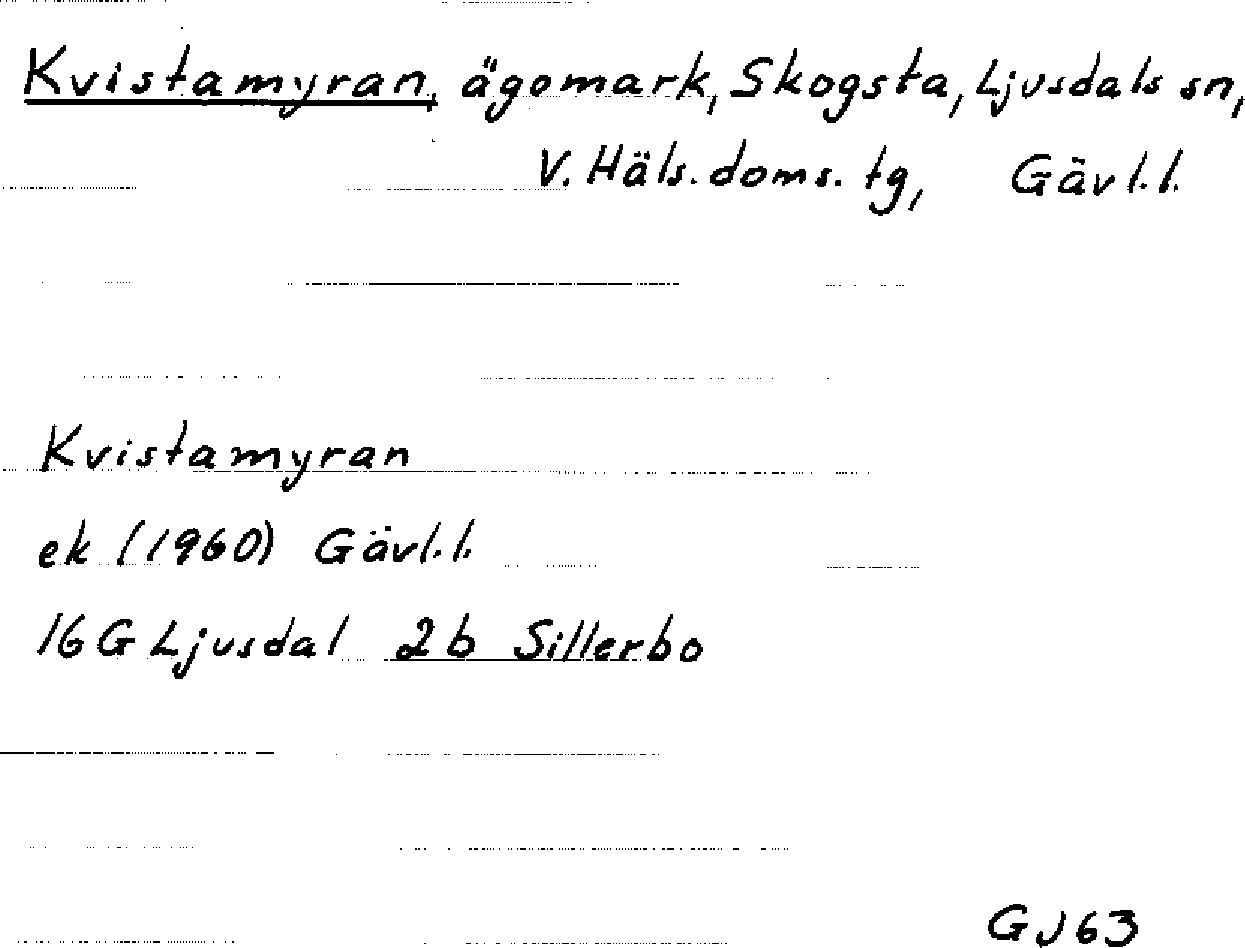 Kvistamyran, ägomark, Skogsta, Ljusdals sn,
V. Häls. doms. tg, Gävl.l.
Kvistamyran
ek (1960) Gävl.l.
16 G Ljusdal 2b Sillerbo
GJ63